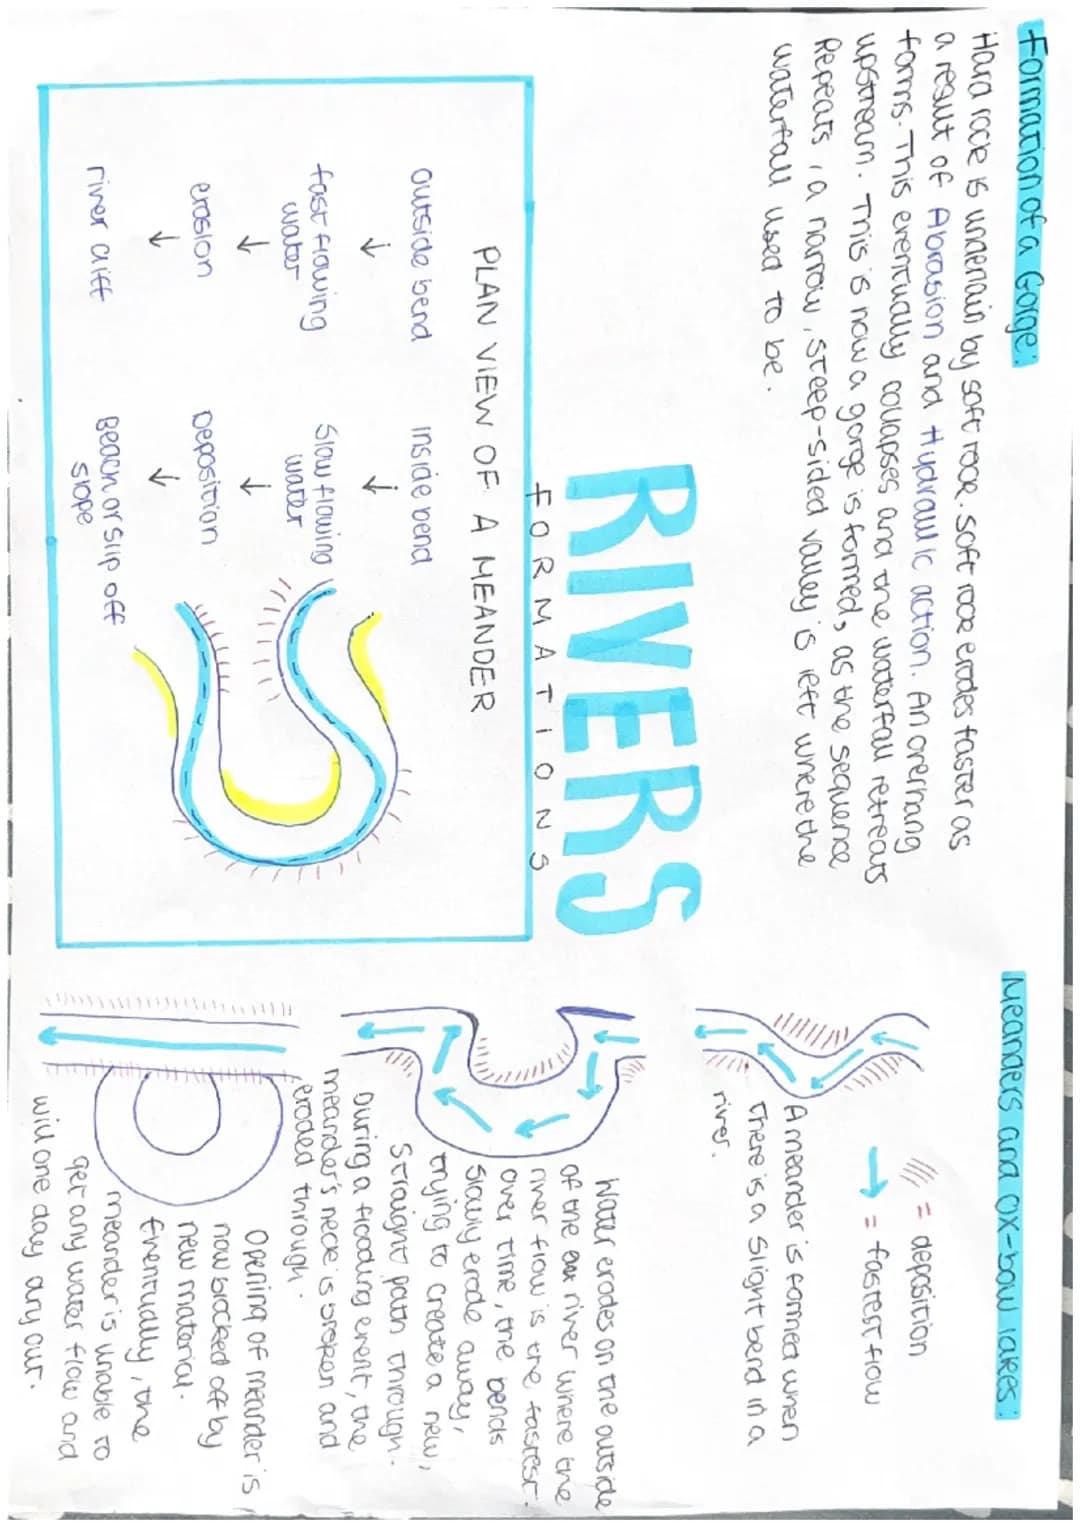 Formation of a Gorge:
Hard rock is underlain by soft rock. Soft rock erodes faster as
a result of Abrasion and Hydraulic action. An overhang
forms. This eventually collapses and the waterfall retreats
upstream. This is now a gorge is formed, as the sequence
Repeats, a narrow, steep-sided valley is left where the
waterfall used to be.
RIVERS
FORMATiONS
PLAN VIEW OF A MEANDER
outside bend
↓
fast flowing
water
↓
erosion
↓
river cliff
inside bend
↓
Slow flowing
water
↓
Deposition
↓
Beach or slip off
slope
Meanders and ox-bow lakes:
= deposition
→ = fastest flow
A meander is formed when
there is a slight bend in a
river.
Water erodes on the outside
of the river where the
river flow is the fastest.
over time, the bends
slowly erode away,
trying to create a new,
straight path through.
During a flooding event, the
meander's neck is broken and
eroded through.
Opening of meander is
now blocked off by
new material.
Eventually, the
meander is unable to
get any water flow and
will one day dry out.